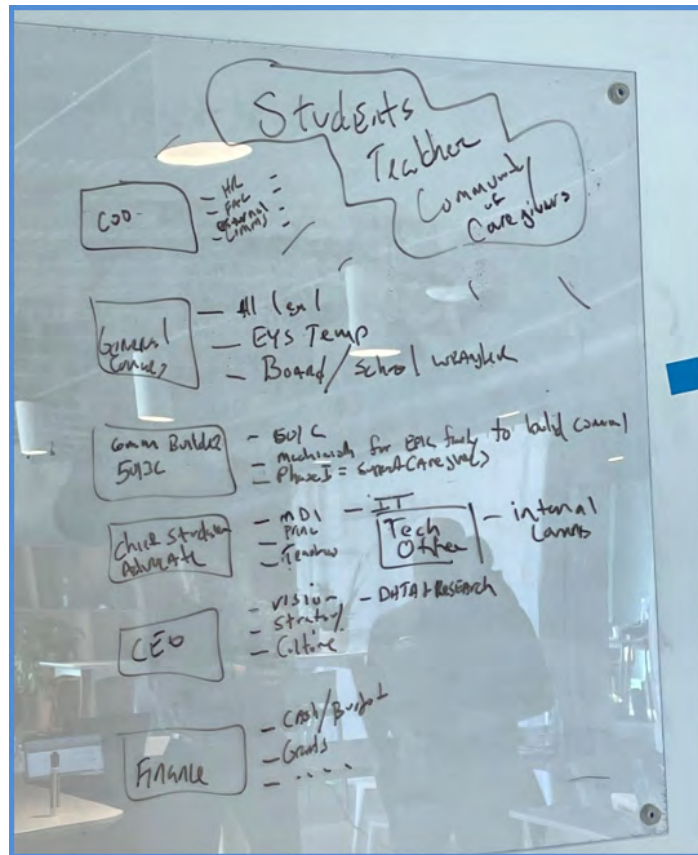 Students
Teacher
Community
of
Caregivers
COO
- HR
- FAC
- External
Comms
General
Counsel
- All legal
- EYS Temp
- Board/School wrangler
Comm Builder
5013C
- 501C
- mechinism for EPIC funds to build commun
- Phase I = Support Caregivers
Chief Student
Advocate
- MDI
- Princ
- Teachers
- IT
Tech
Other
- internal
Comms
CEO
- vision
- Strategy
- Culture
- DATA + RESEARCH
Finance
- Cash/Budget
- Grants
- ....